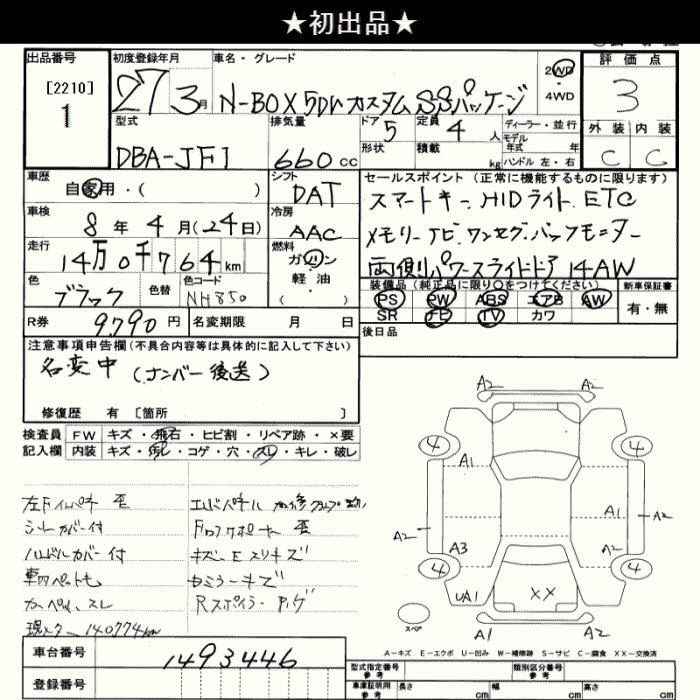 ★初出品★
出品番号
[2210]
1
初度登録年月
27 3月
車名・グレード
N-BOX 5Dr カスタム SSパッケージ
2WD
・4WD
評価点
3
外装 内装
C C
型式
DBA-JF1
排気量
660 cc
ドア 5
形状
定員 4 人
積載 kg
ディーラー・並行
モデル
年式 年
ハンドル 左・右
車歴
自家用・( )
シフト
DAT
セールスポイント(正常に機能するものに限ります)
スマートキー.HIDライト.ETC
メモリーナビ.ワンセグ.バックモニター
両側パワースライドドア 14AW
車検
8年4月(24日)
冷房
AAC
走行
14万0千764km
燃料
ガソリン
・軽油・
( )
色
ブラック
色替
色コード
NH850
装備品(純正品に限り○をつけてください)
PS PW ABS エアB AW
SR ナビ TV カワ
新車保証書
有・無
R券 9,790円
名変期限 月 日
後日品
注意事項申告欄(不具合内容等は具体的に記入して下さい)
名変中(ナンバー後送)
修復歴 有 [箇所 ]
検査員 FW キズ・飛石・ヒビ割・リペア跡・×要
記入欄 内装 キズ・汚レ・コゲ・穴・スレ・キレ・破レ
左Fインパネ 歪
シートカバー付
ハンドルカバー付
車内ペットも
カーペットスレ
現メーター 140774km
Fロアサポート 歪
キズ・エスリキズ
Rスポイラー
A2 A2
4 4
A1 A1
A2 A1 A2
A3 A2
4 4
UA1 XX
スペア
A1 A2
A-キズ E-エクボ U-凹み W-補修跡 S-サビ C-腐食 XX-交換済
車台番号 1493446
登録番号
型式指定番号
参考
類別区分番号
参考
車庫証明用
参考
長さ cm
幅 cm
高さ cm